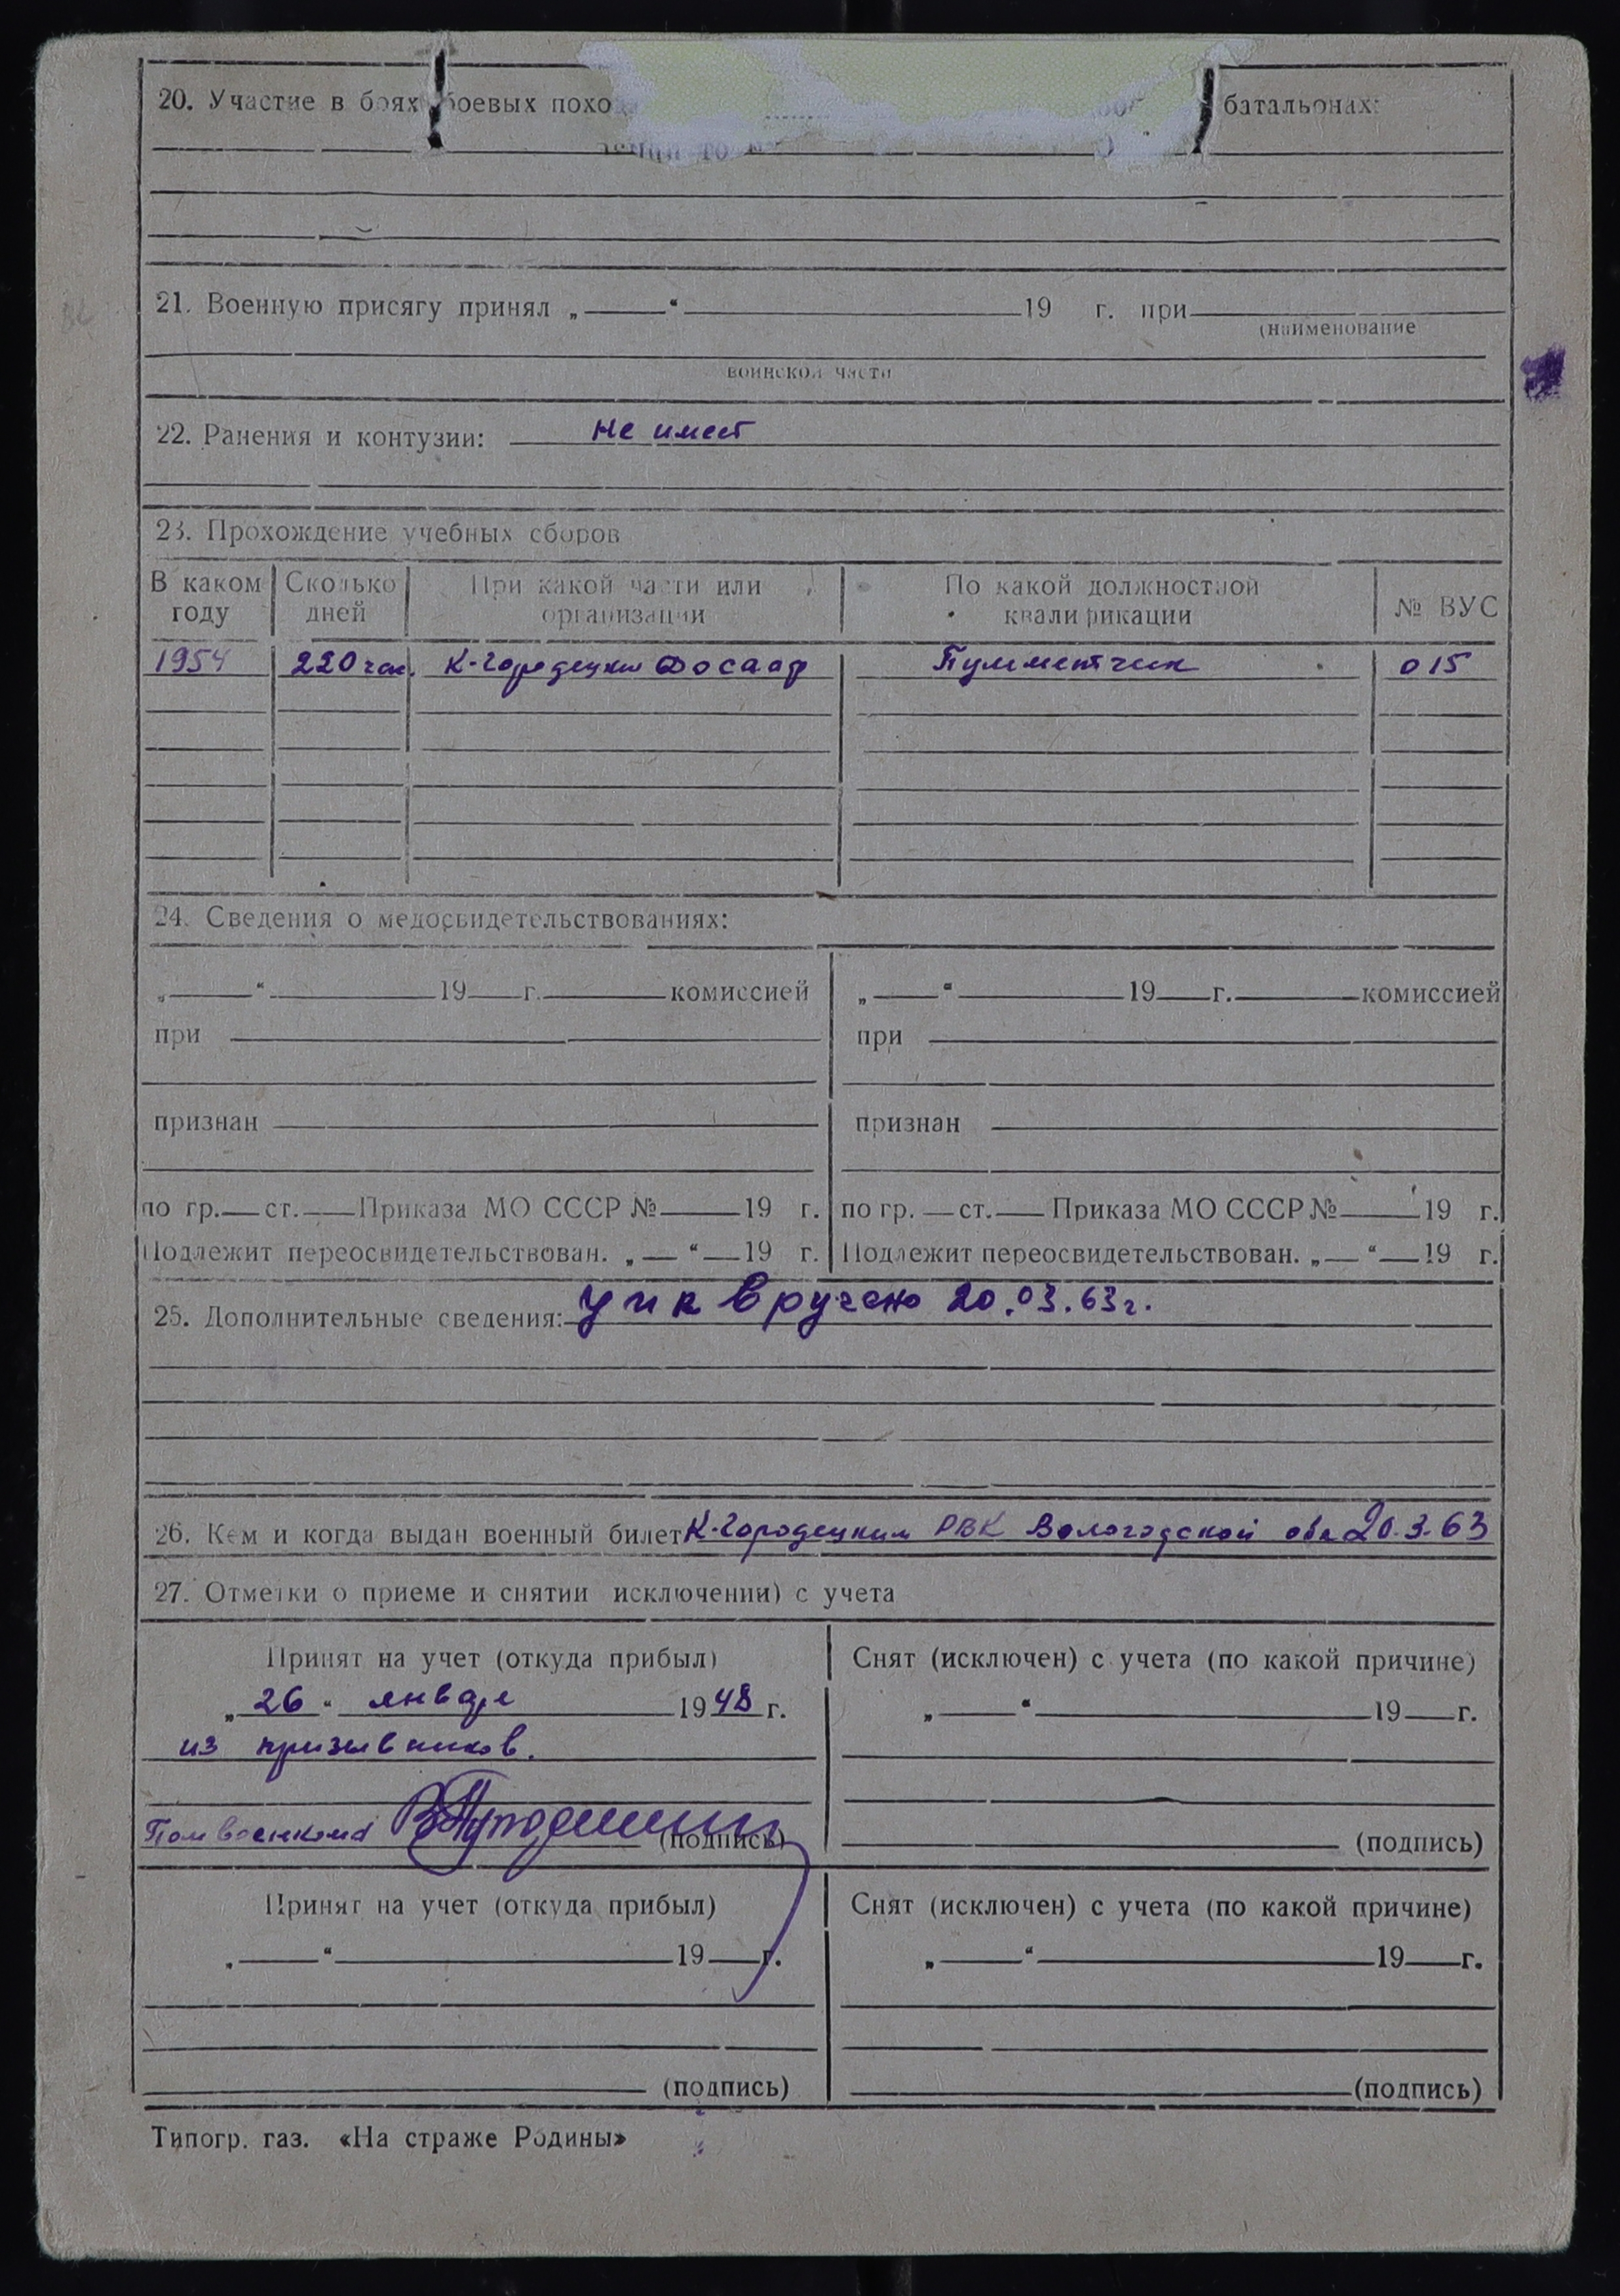 20. Участие в боях боевых похо батальонах:
21. Военную присягу принял „ “ 19 г. при
(наименование
воинской части
22. Ранения и контузии: Не имеет
23. Прохождение учебных сборов
В каком году Сколько дней При какой части или организации По какой должностной квалификации № ВУС
1954 220 час. К-Городецкий Досааф Пулиметчик 015
24. Сведения о медосвидетельствованиях:
„ “ 19 г. комиссией „ “ 19 г. комиссией
при при
признан признан
по гр. ст. Приказа МО СССР № 19 г. по гр. ст. Приказа МО СССР № 19 г.
Подлежит переосвидетельствован. „ “ 19 г. Подлежит переосвидетельствован. „ “ 19 г.
25. Дополнительные сведения: вручено 20.03.63г.
26. Кем и когда выдан военный билет К-Городецким РВК Вологодской обл 20.3.63
27. Отметки о приеме и снятии исключении) с учета
Принят на учет (откуда прибыл) Снят (исключен) с учета (по какой причине)
„ 26 “ января 1948 г. „ “ 19 г.
из призывников.
Пом военкома (подпись) (подпись)
Принят на учет (откуда прибыл) Снят (исключен) с учета (по какой причине)
„ “ 19 г. „ “ 19 г.
(подпись) (подпись)
Типогр. газ. «На страже Родины»